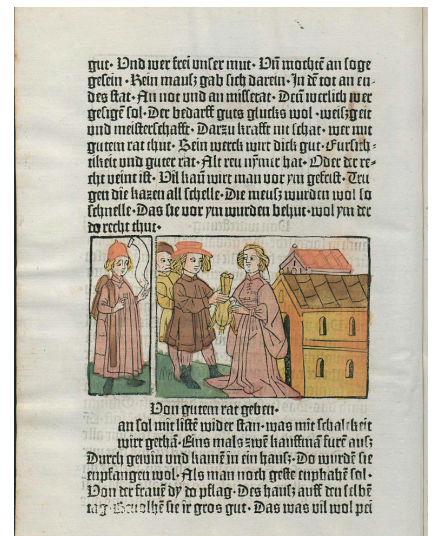 gut· Vnd wer frei vnser mut· Vñ mochtē an ſoge
geſein· Kein mauſz gab ſich darein· In dē tot an en-
des ſtat· An not vnd an miſſetat· Deñ werlich wer
geſigen̄ ſol· Der bedarff gutes glucks wol· weiſzheit
vnd meiſterſchafft· Darzu krafft mi ſchat· wer mit
gutem rat thut· Sein werck wirt dick gut· Furſich-
tikeit vnd guter rat· Alt reu nȳmer hat· Oder der re-
cht veint iſt· Vil kaū wirt man vor ym gefriſt· Tru
gen die kazen all ſchelle· Die meuſz wurden wol ſo
ſchnelle· Das ſie vor ym wurden behut· wol ym der
do recht thut·
Von gutem rat geben·
an ſol mit liſtē wider ſtan· was mit ſchalckeit
wirt gethā· Eins mals zwē kauffmā furē auſz
Durch gewin vnd kamē in ein hauſz· Do wurdē ſie
enpfangen wol· Als man noch geſte enphahē ſol·
Von der frauē dy do pflag· Des hauſz auff den ſelbē
tag· Beuolhē ſie ir gros gut· Das was vil wol pei